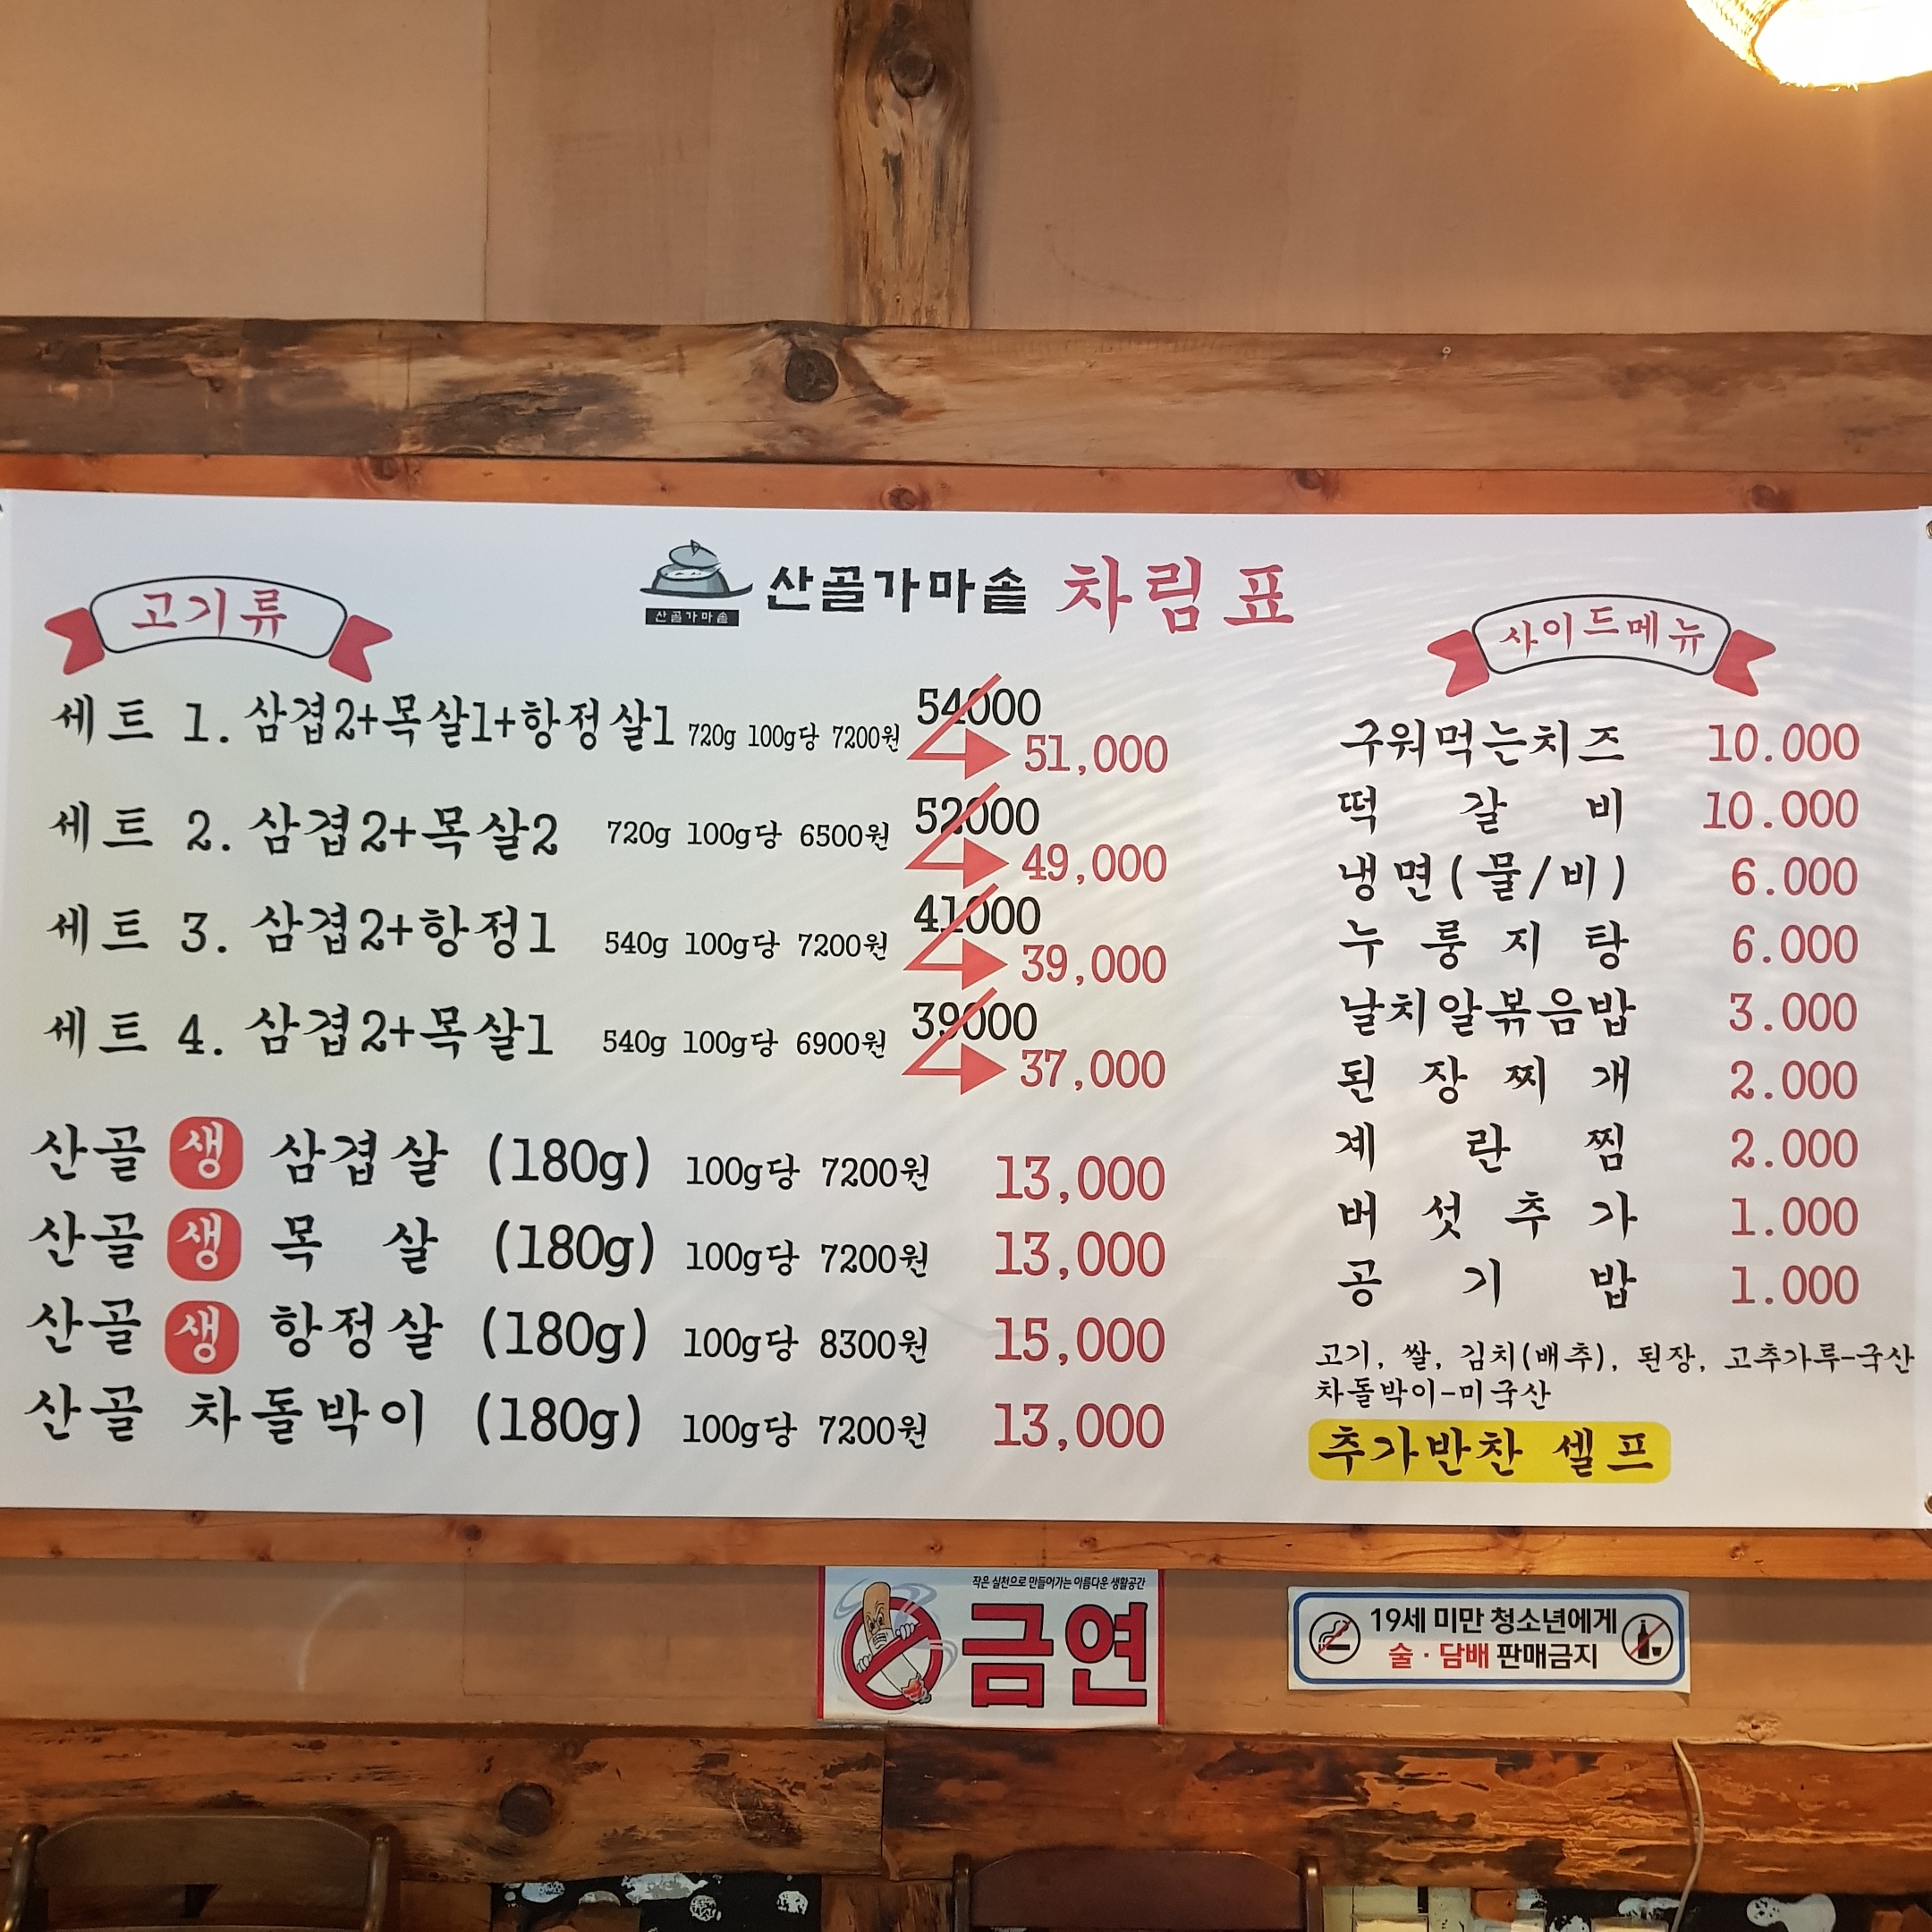 산골가마솥 차림표
산골가마솥
고기류
세트 1. 삼겹2+목살1+항정살1 720g 100g당 7200원 54000
51,000
세트 2. 삼겹2+목살2 720g 100g당 6500원 52000
49,000
세트 3. 삼겹2+항정1 540g 100g당 7200원 41000
39,000
세트 4. 삼겹2+목살1 540g 100g당 6900원 39000
37,000
산골 생 삼겹살 (180g) 100g당 7200원 13,000
산골 생 목 살 (180g) 100g당 7200원 13,000
산골 생 항정살 (180g) 100g당 8300원 15,000
산골 차돌박이 (180g) 100g당 7200원 13,000
사이드메뉴
구워먹는치즈 10.000
떡갈비 10.000
냉면(물/비) 6.000
누룽지탕 6.000
날치알볶음밥 3.000
된장찌개 2.000
계란찜 2.000
버섯추가 1.000
공기밥 1.000
고기, 쌀, 김치(배추), 된장, 고추가루-국산
차돌박이-미국산
추가반찬 셀프
작은 실천으로 만들어가는 아름다운 생활공간
금연
19세 미만 청소년에게
술·담배 판매금지